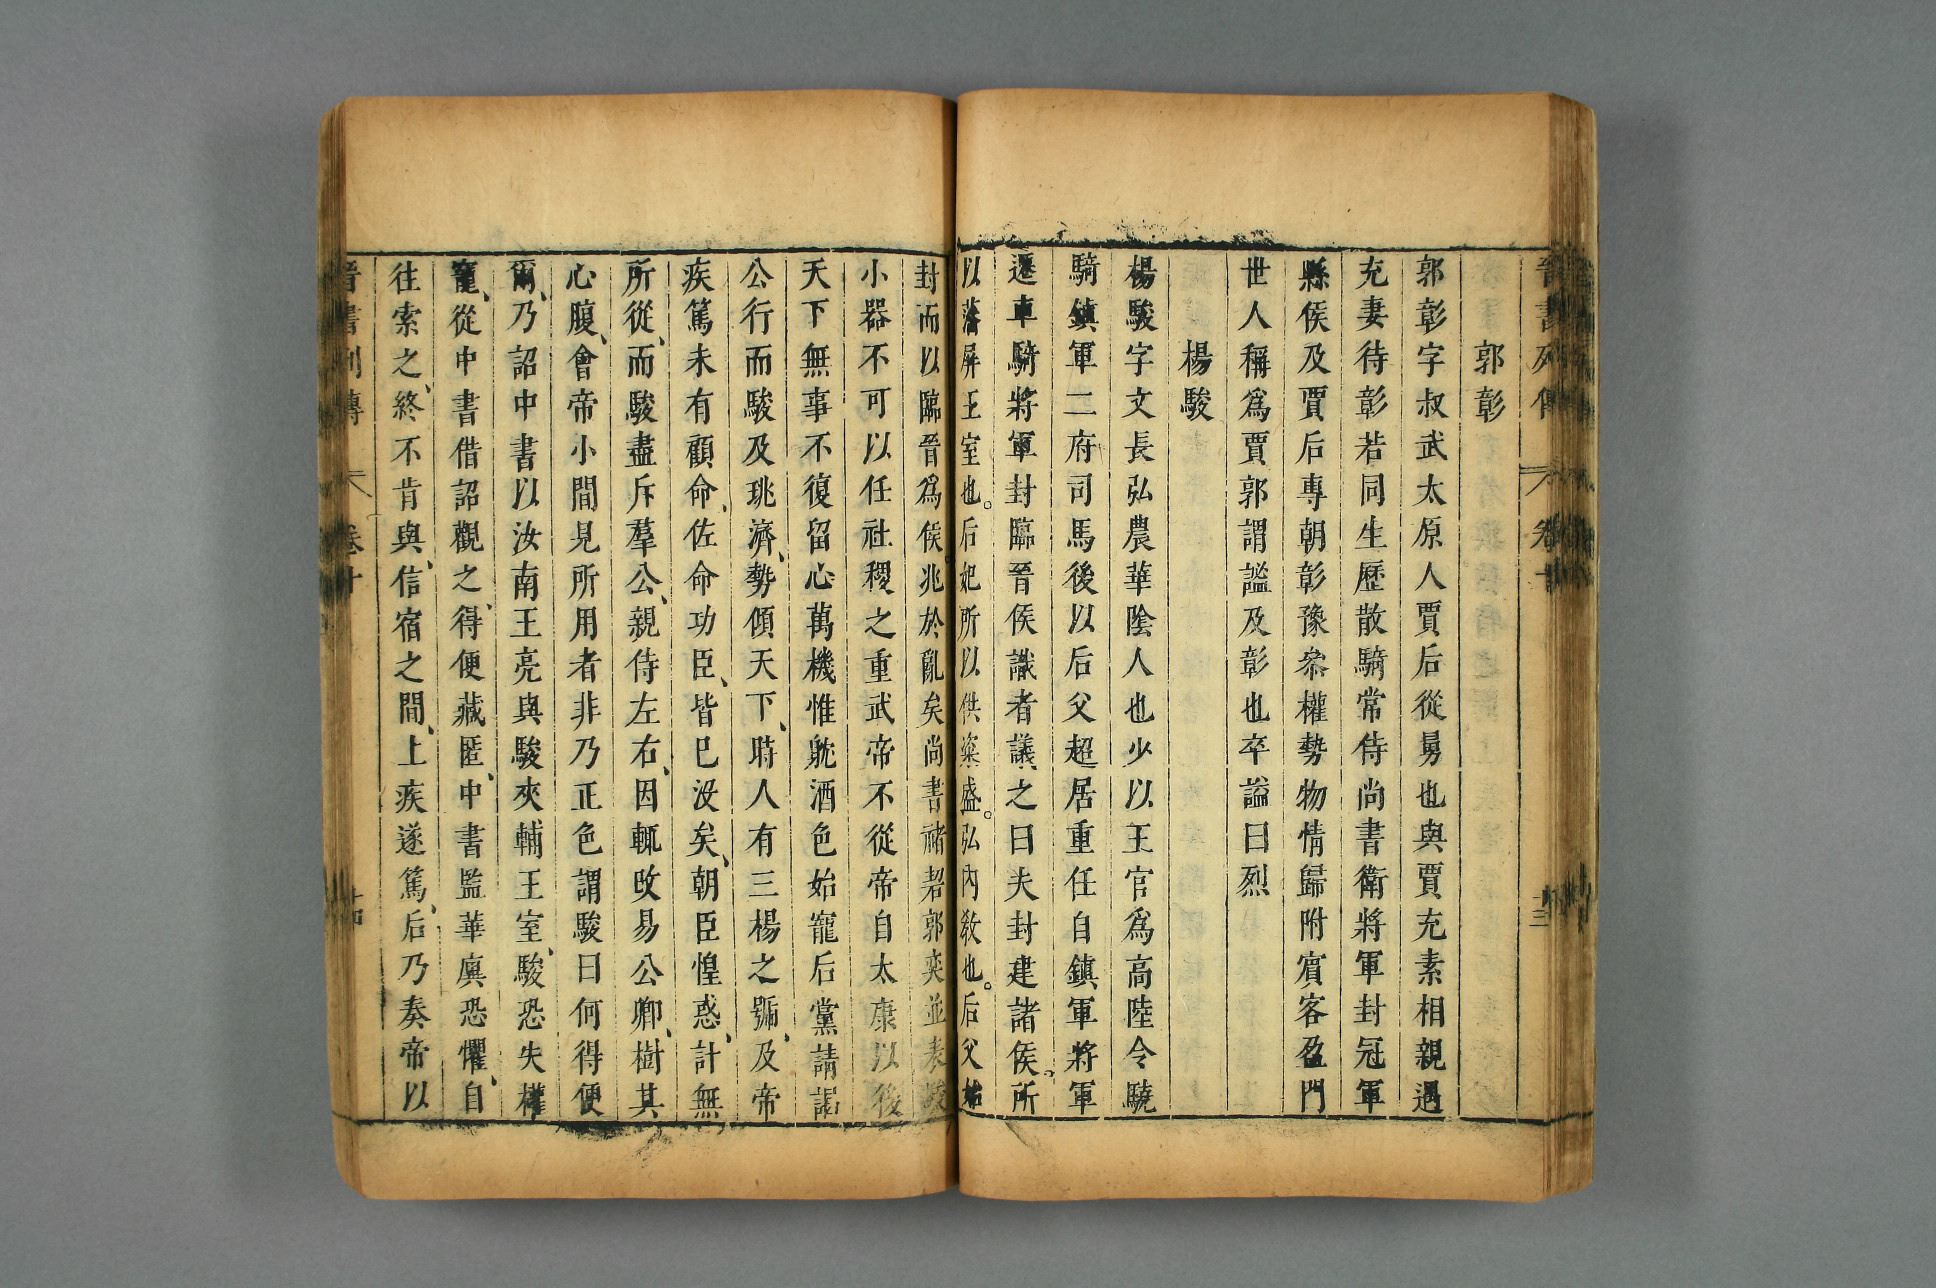 晉書列傳 卷十 十三
郭彰
郭彰字叔武太原人賈后從舅也與賈充素相親遇
充妻待彰若同生歷散騎常侍尚書衛將軍封冠軍
縣侯及賈后專朝彰豫叅權勢物情歸附賓客盈門
世人稱爲賈郭謂謐及彰也卒謚曰烈
楊駿
楊駿字文長弘農華隂人也少以王官爲高陸令驍
騎鎮軍二府司馬後以后父超居重任自鎮軍將軍
遷車騎將軍封臨晉侯識者議之曰夫封建諸侯所
以藩屏王室也。后妃所以供粢盛。弘內敎也。后父始
封而以臨晉爲侯兆於亂矣尚書褚䂮郭奕並表駿
小器不可以任社稷之重武帝不從帝自太康以後
天下無事不復留心萬機惟躭酒色始寵后黨請謁
公行而駿及珧濟、勢傾天下、時人有三楊之號、及帝
疾篤未有顧命、佐命功臣、皆已沒矣、朝臣惶惑、計無
所從、而駿盡斥羣公、親侍左右、因輒改易公卿、樹其
心腹、會帝小間見所用者非乃正色謂駿曰何得便
爾、乃詔中書以汝南王亮與駿夾輔王室、駿恐失權
寵、從中書借詔觀之、得便藏匿、中書監華廙恐懼、自
往索之、終不肯與、信宿之間、上疾遂篤、后乃奏帝以
晉書列傳 卷十 十四